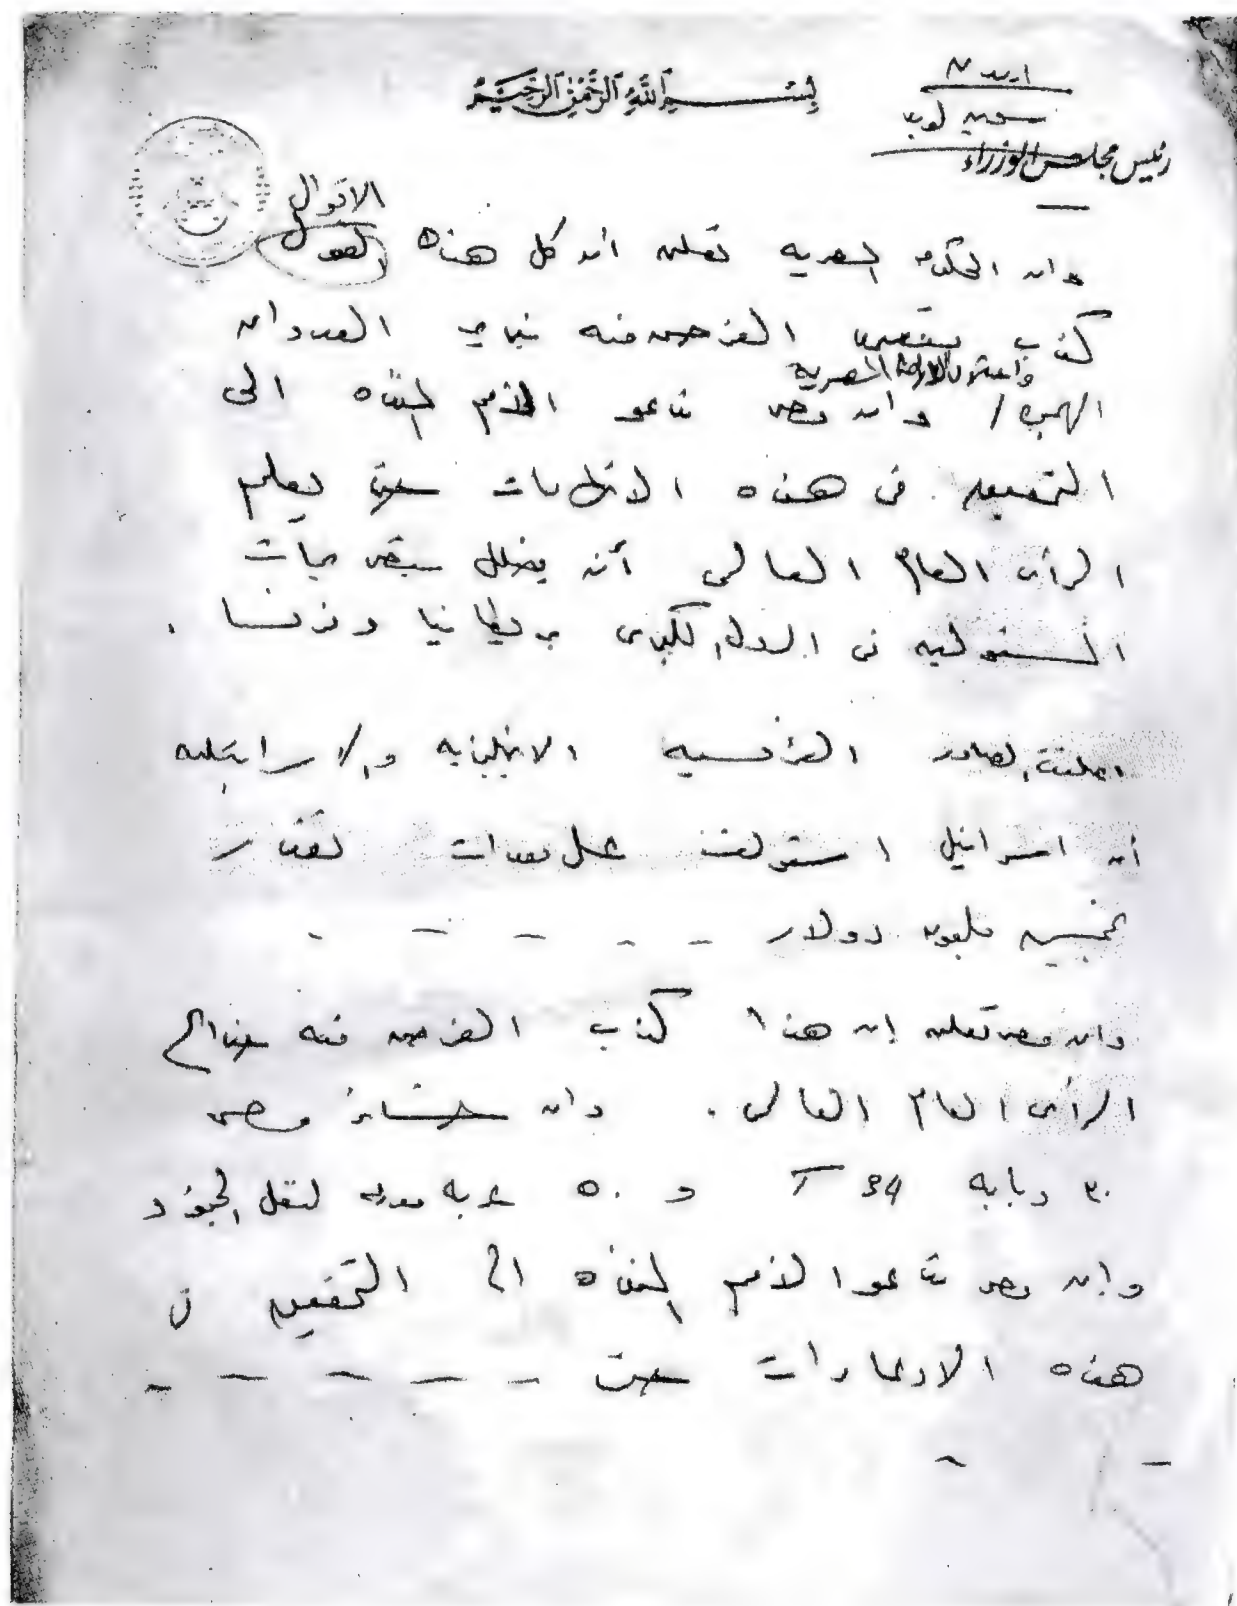 بسم الله الرحمن الرحيم
رئيس مجلس الوزراء
الاقوال
وان الحكومه المصريه تعلن ان كل هذه القول
كذب يقصد الغرض منه العدوان
واحتلال الاراضى المصريه
وان مصر تدعو الأمم المتحده الى
التحقيق فى هذه الادعاءات حتى يعلم
الرأى العام العالمى أنه يضلل بتصريحات
المسئوليه فى الدول الكبرى بريطانيا وفرنسا .
اعلنت المصادر الفرنسيه الانجليزيه والاسرائيليه
ان اسرائيل استولت على معدات تقدر
بخمسين مليون دولار - - - - -
وان مصر تعلن ان هذا كذب الغرض منه خداع
الرأى العام العالمى . وان خسائر مصر
٣٠ دبابه T 34 و ٥٠ عربه مدرعه لنقل الجنود
وان مصر تدعو الامم المتحده الى التحقيق فى
هذه الادعاءات حتى - - - - -
- -